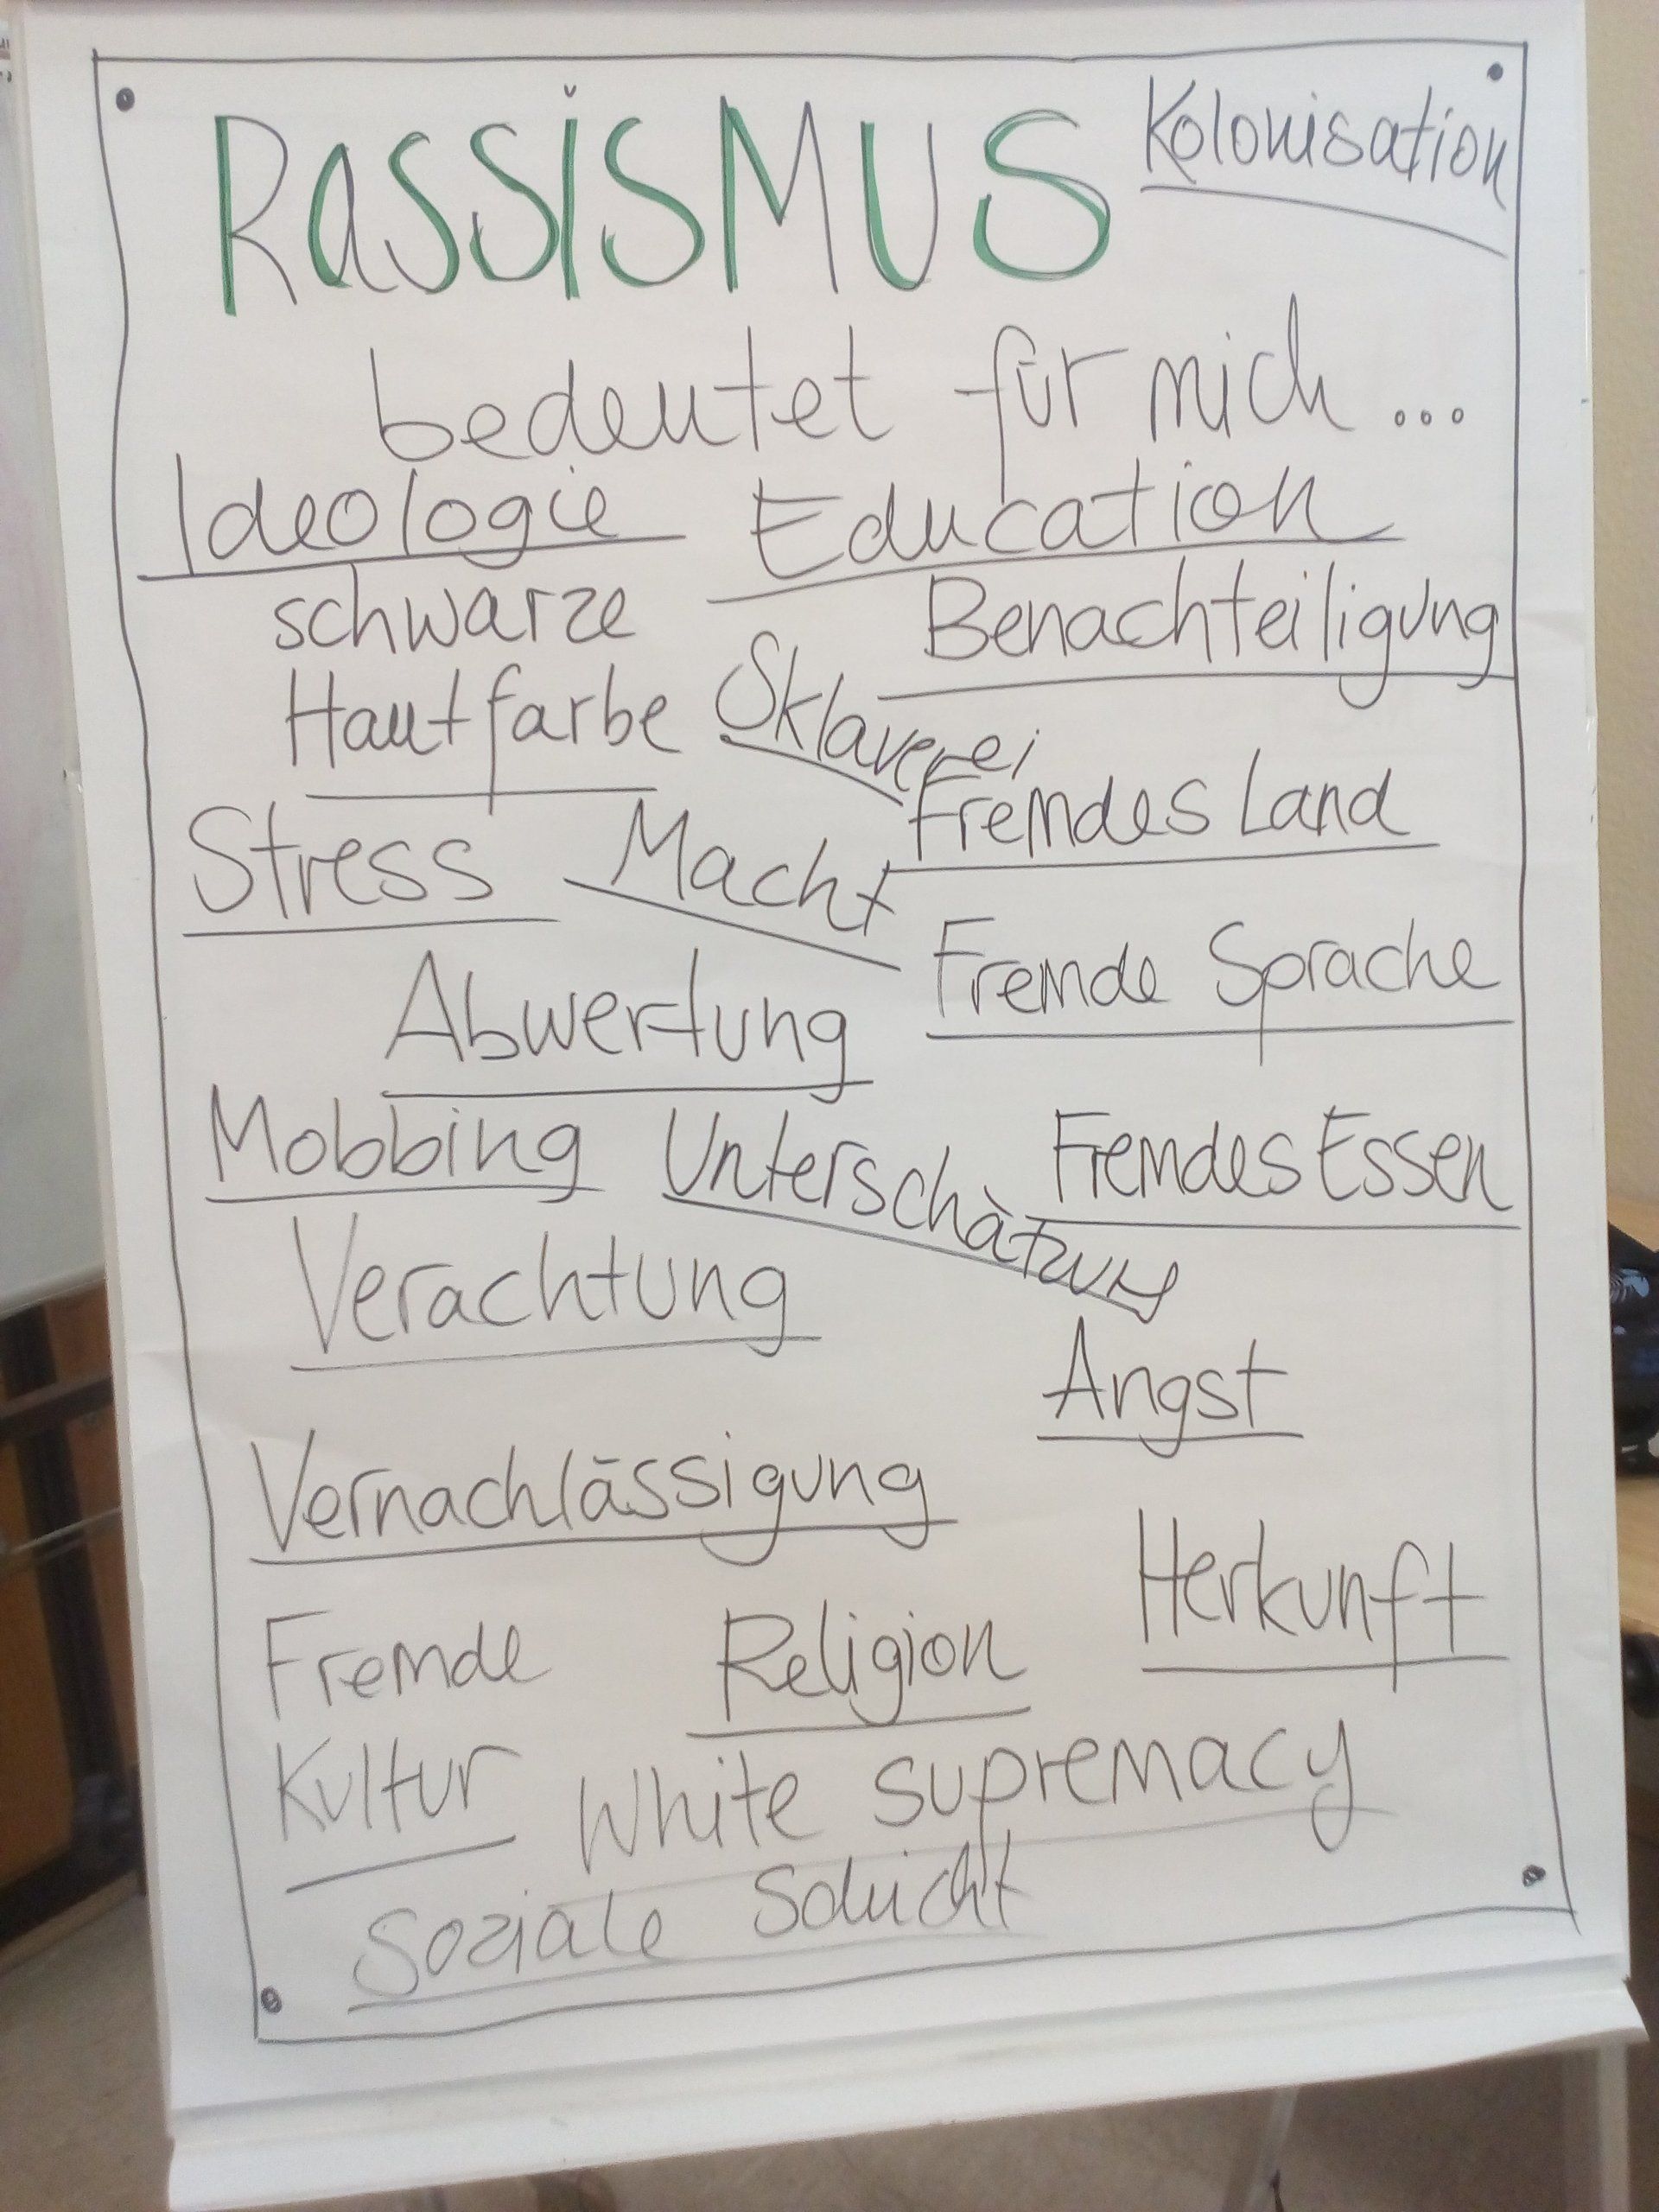 RASSISMUS
Kolonisation
bedeutet für mich ...
Ideologie
Education
schwarze
Hautfarbe
Benachteiligung
Sklaverei
Fremdes Land
Stress
Macht
Fremde Sprache
Abwertung
Mobbing
Unterschätzung
Fremdes Essen
Verachtung
Angst
Vernachlässigung
Herkunft
Fremde
Kultur
Religion
White supremacy
Soziale Schicht